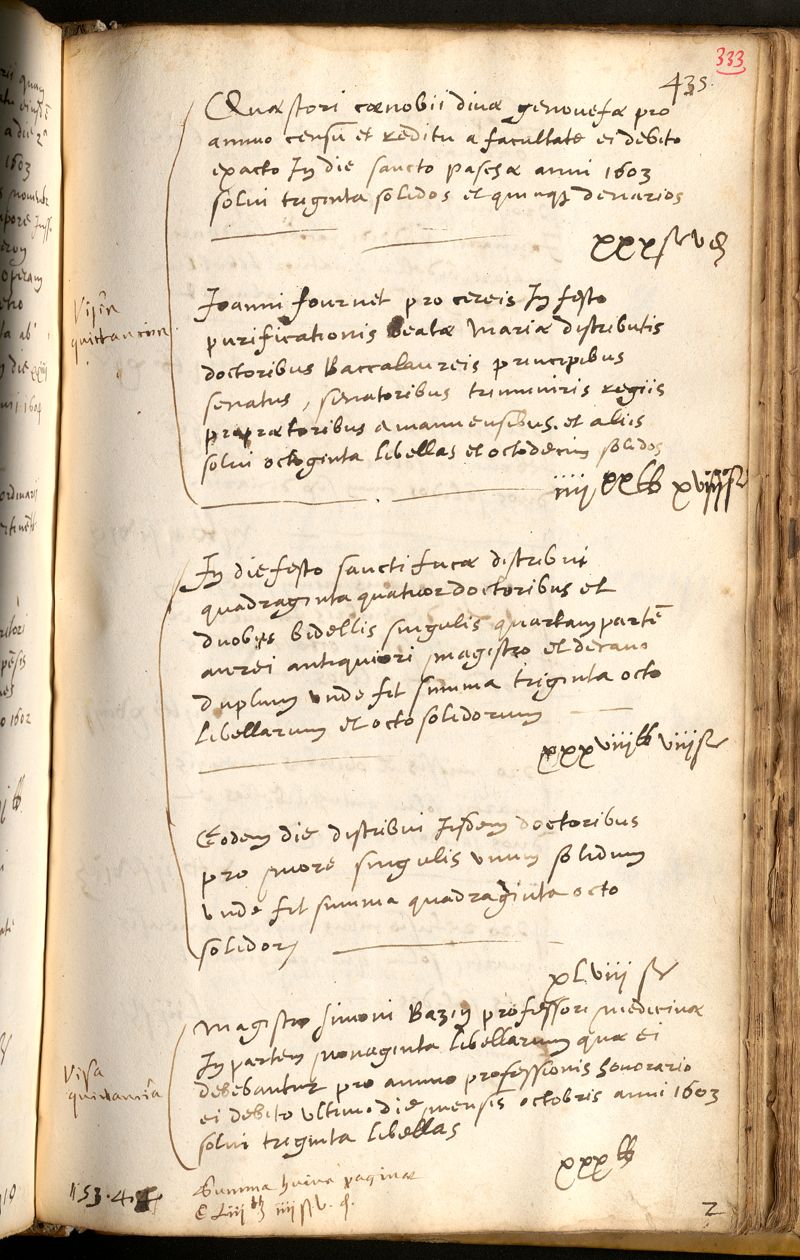 333
435.
Quæstori cœnobii divæ genovefæ pro
annuo censu et reditu a facultate ei debito
exacto In die sancto paschæ anni 1603
solvi triginta solidos et quinq; denarios
xxx s v d
Visa
quittancia
Joanni fournet pro cereis In festo
purificationis Beatæ Mariæ distributis
doctoribus Baccalaureis principibus
senatus, senatoribus triumviris regiis
proprætoribus amanuensibus. et aliis
solvi octoginta libellas et octodecim solidos
iiii xx lb xviii s
In die festo sancti Lucæ distribui
quadraginta quatuor doctoribus et
duobus bidellis singulis quartam partē
aurei antiquiori magistro et decano
duplum unde fit summa triginta octo
libellarum et octo solidorum
xxxviii lb viii s
Eodem die distribui Iisdem doctoribus
pro more singulis unum solidum
unde fit summa quadraginta octo
solidor;
xLviii s
Magistro Simoni Bazin professori medicinæ
In partem nonaginta libellarum quæ ei
debebantur pro annuo professionis honorario
ei debito ultimo die mensis octobris anni 1603
solvi triginta libellas
xxx lb
Visa
quittancia
153 . 4 .
Summa huius paginæ
C Liii lb iiii s v. d.
2